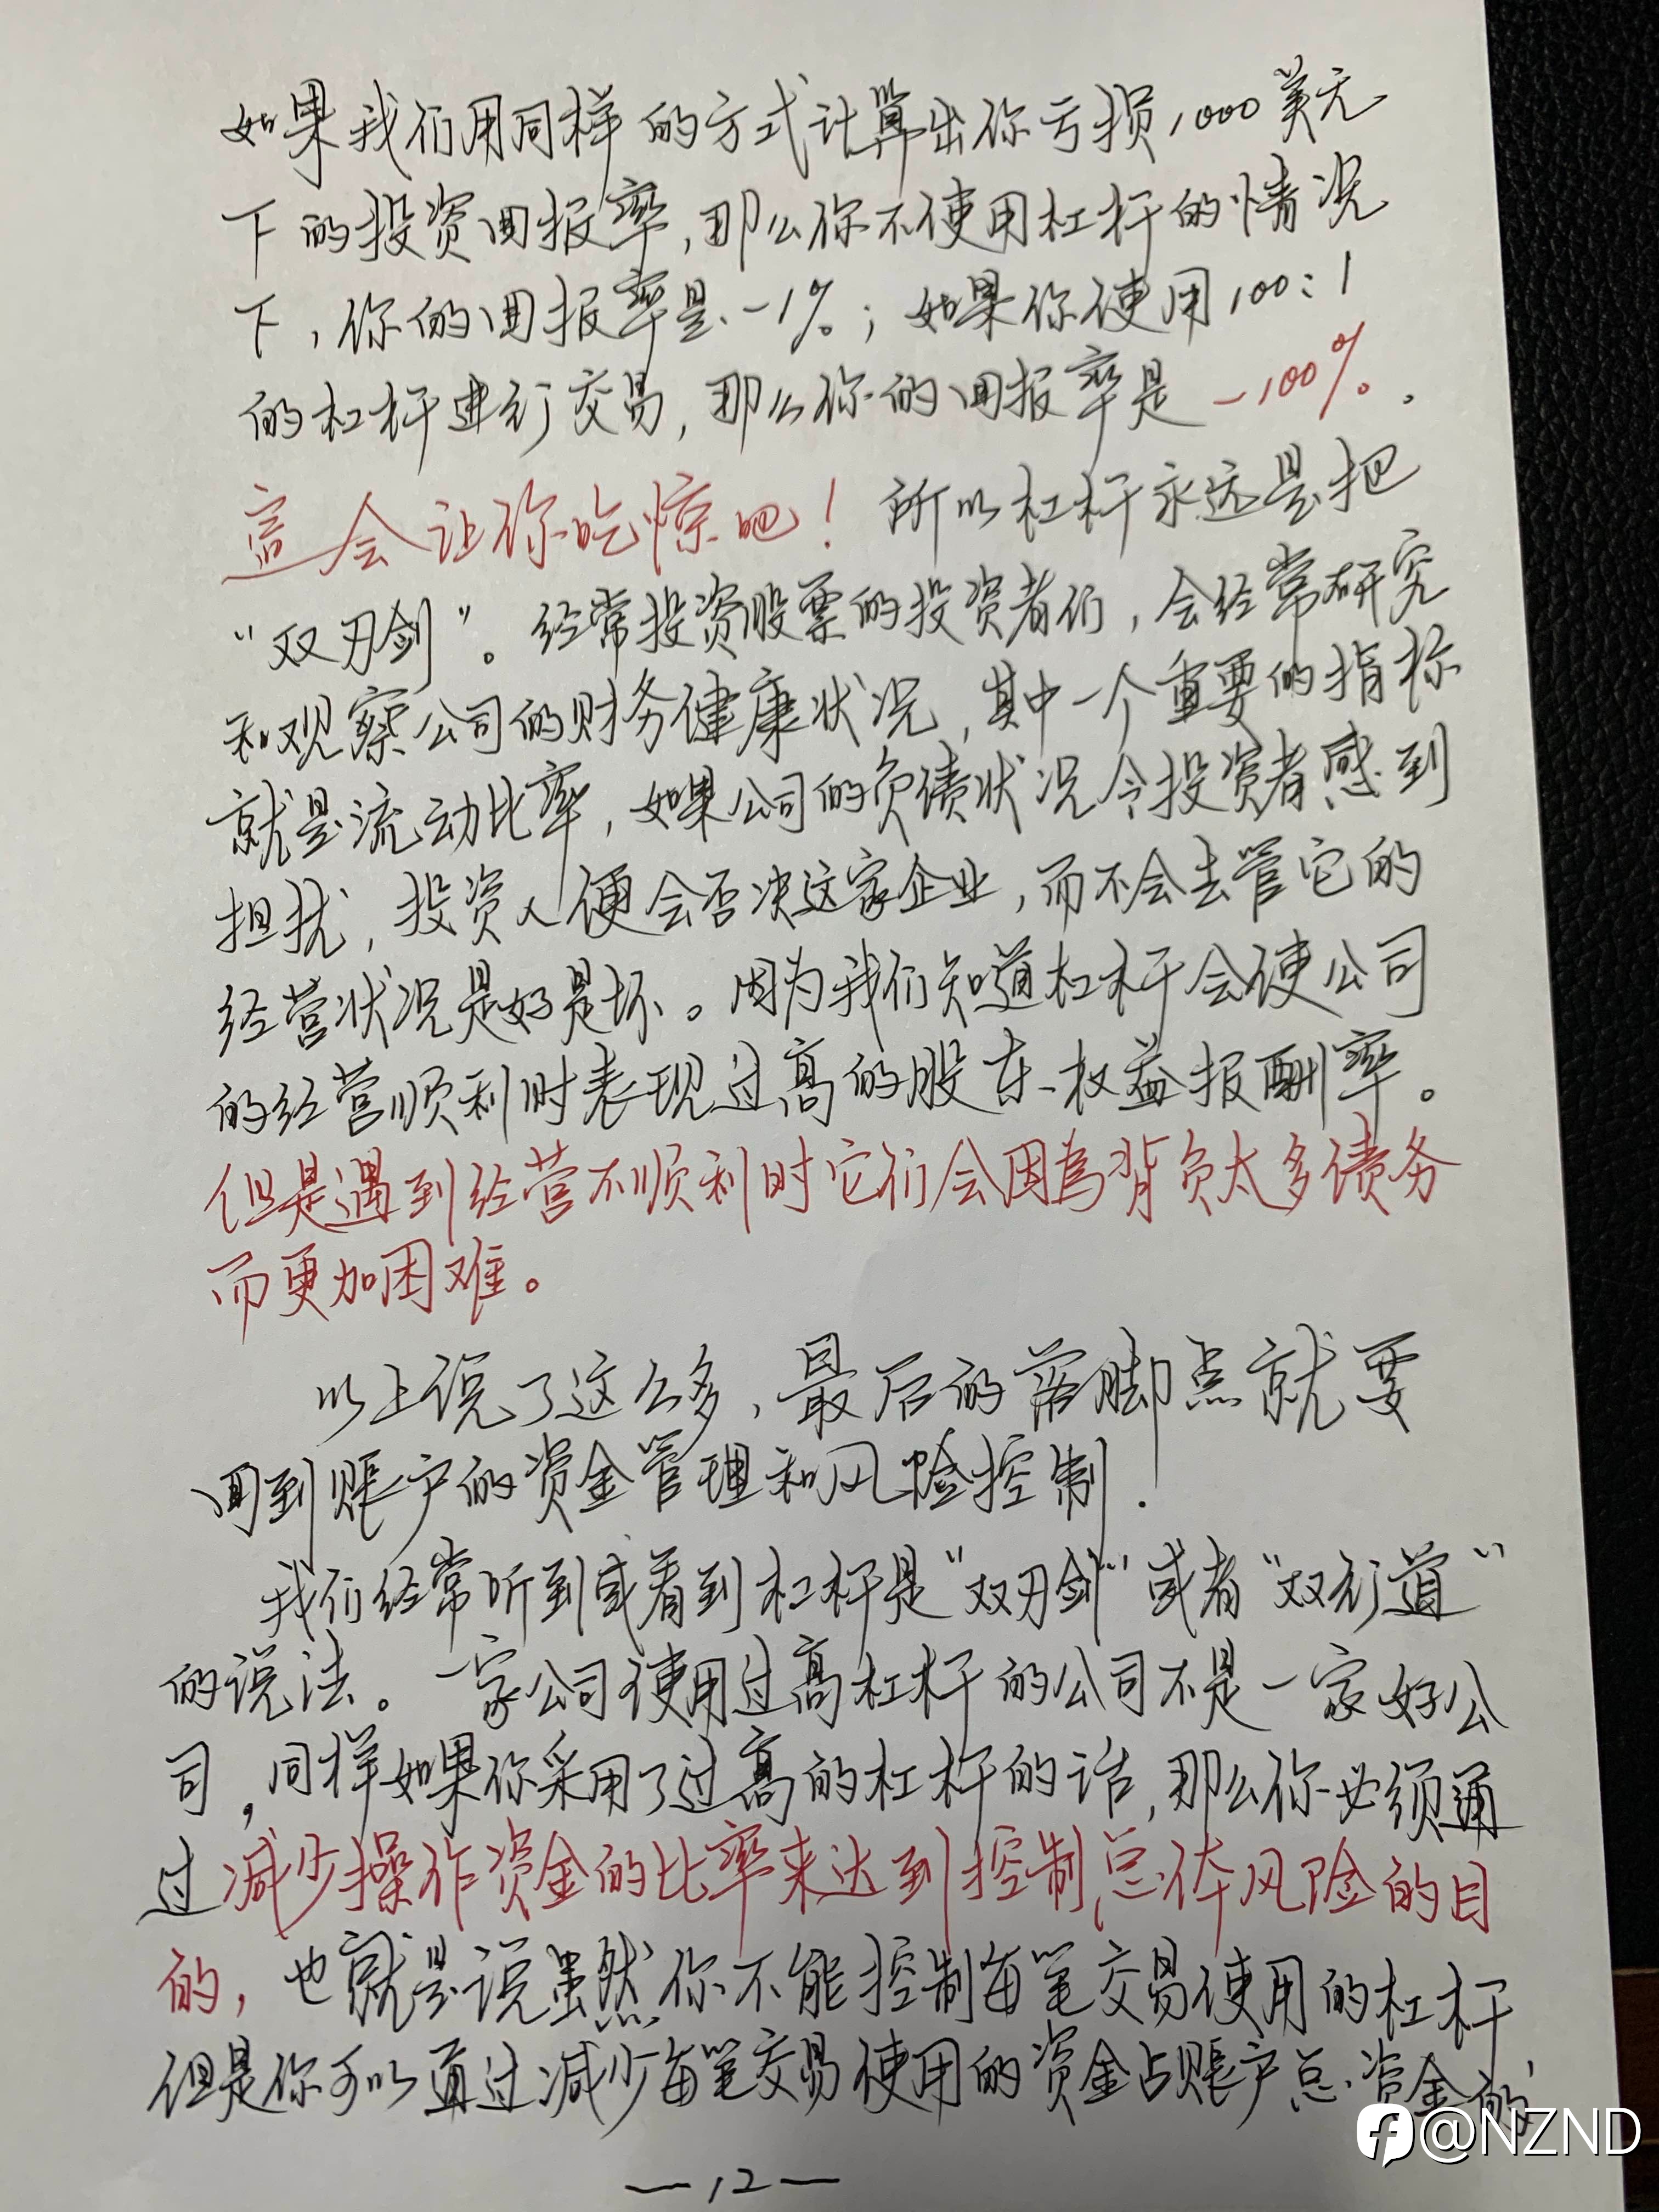 如果我们用同样的方式计算出你亏损1000美元
下的投资回报率,那么你不使用杠杆的情况
下,你的回报率是-1%;如果你使用100:1
的杠杆进行交易,那么你的回报率是-100%.
這会让你吃惊吧!所以杠杆永远是把
“双刃剑”。经常投资股票的投资者们,会经常研究
和观察公司的财务健康状况,其中一个重要的指标
就是流动比率,如果公司的负债状况令投资者感到
担扰,投资人便会否决这家企业,而不会去管它的
经营状况是好是坏。因为我们知道杠杆会使公司
的经营顺利时表现过高的股东权益报酬率。
但是遇到经营不顺利时它们会因為背负太多债务
而更加困难。
以上说了这么多,最后的落脚点就要
回到账户的资金管理和风险控制.
我们经常听到或看到杠杆是“双刃剑”或者“双行道”
的说法。一家公司使用过高杠杆的公司不是一家好公
司,同样如果你采用了过高的杠杆的话,那么你必须通
过减少操作资金的比率来达到控制总体风险的目
的,也就是说虽然你不能控制每笔交易使用的杠杆
但是你可以通过减少每笔交易使用的资金占账户总资金的
—12—
@NZND